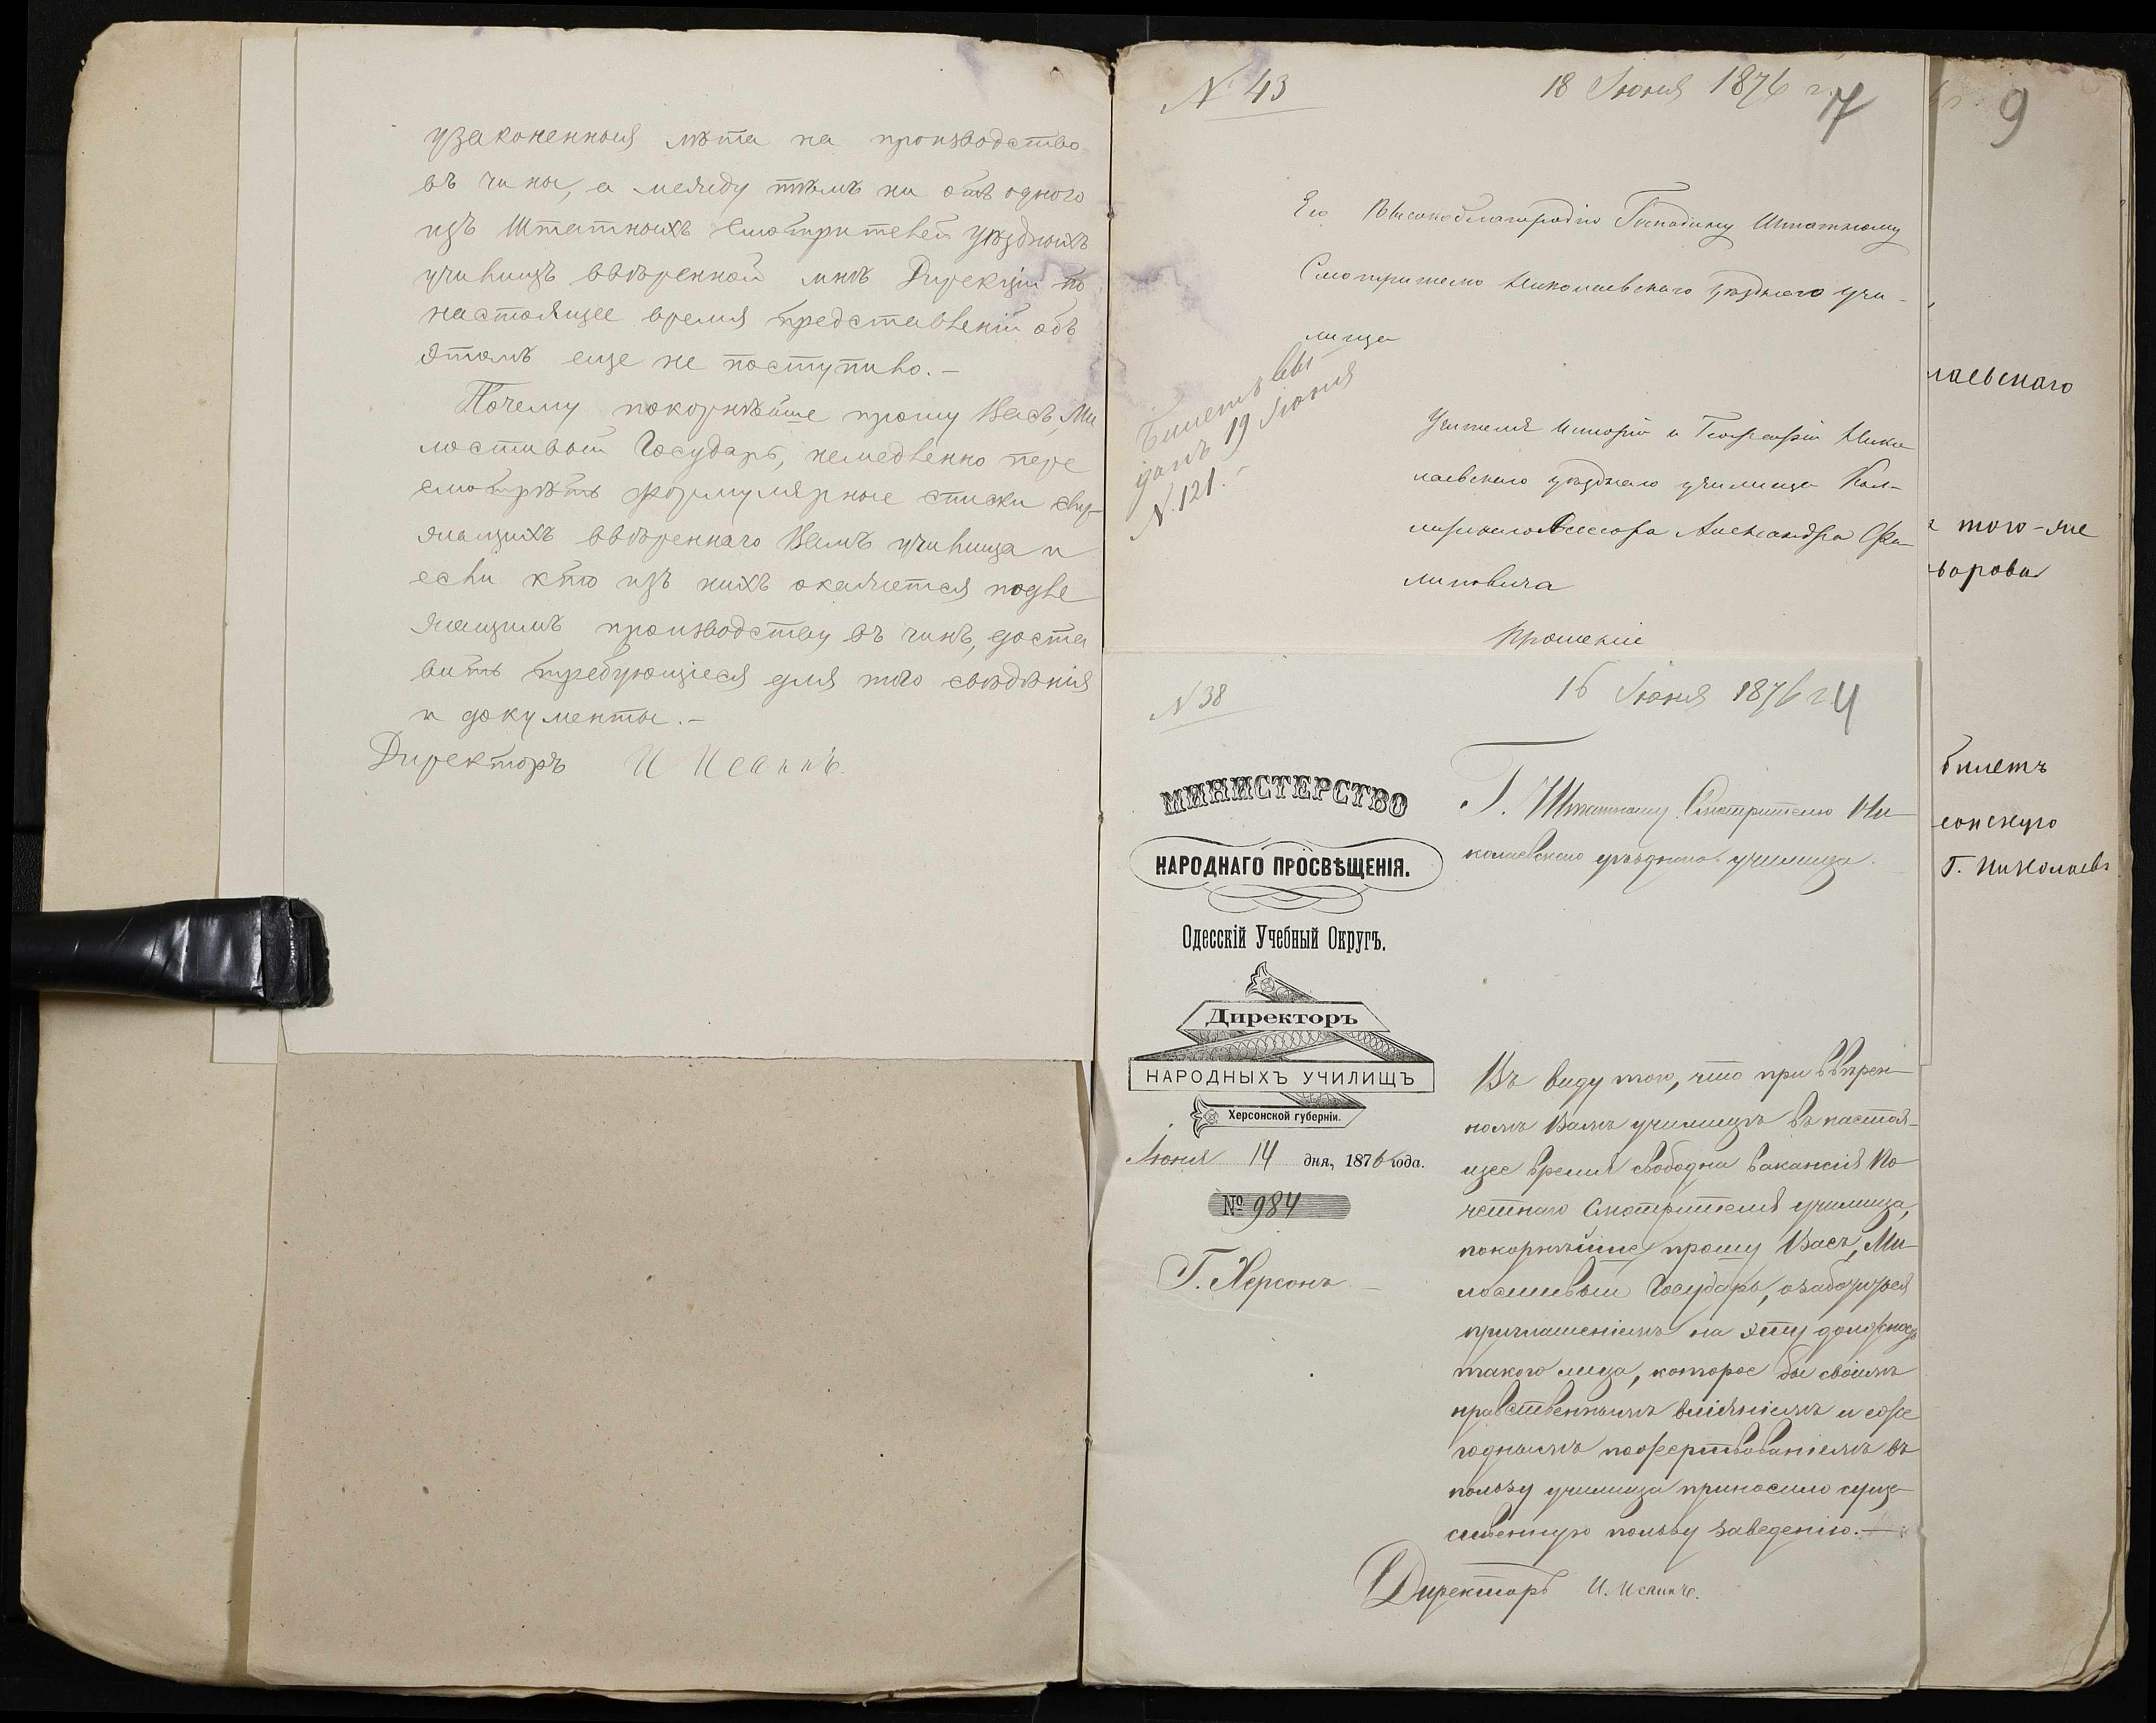 узаконенныя лѣта на производство
въ чины, а между тѣмъ ни отъ одного
изъ Штатныхъ Смотрителей уѣздныхъ
училищъ ввѣренной мнѣ Дирекціи по
настоящее время представленій объ
этомъ еще не поступило.—
Почему покорнѣйше прошу Васъ, Ми
лостивый Государь, немедленно пере
смотрѣть формулярные списки слу-
жащихъ ввѣреннаго Вамъ училища и
если кто изъ нихъ окажется подле
жащимъ производству въ чинъ, доста
вить требующіеся для того свѣдѣнія
и документы.—
Директоръ
N 43
18 Іюня 1876 г.
7
Его Высокоблагородію Господину Штатному
Смотрителю Николаевскаго уѣзднаго учи-
лища
Билетъ
данъ 19 Іюня
N. 121.-
Учителя Исторіи и Географіи Нико
лаевскаго уѣзднаго училища Кол-
Ассесора Александра Фи
липовича
Прошеніе
N 38
16 Іюня 1876 г.
4
МИНИСТЕРСТВО
НАРОДНАГО ПРОСВѢЩЕНІЯ.
Одесскій Учебный Округъ.
Директоръ
НАРОДНЫХЪ УЧИЛИЩЪ
Херсонской губерніи.
Іюня 14 дня, 1876 года.
№ 984
Г. Херсонъ
Г. Штатному Смотрителю Ни-
колаевскаго уѣзднаго училища.
Въ виду того, что при ввѣрен-
номъ Вамъ училищѣ въ настоя-
щее время свободна вакансія По
четнаго Смотрителя училища,
покорнѣйше прошу Васъ, Ми-
лостивый Государь, озаботиться
приглашеніемъ на эту должность
такого лица, которое бы своимъ
нравственнымъ вліяніемъ и еже
годнымъ пожертвованіемъ въ
пользу училища приносило суще-
ственную пользу заведенію.—
Директоръ
9
лаевскаго
того-же
билетъ
Г. Николаевъ